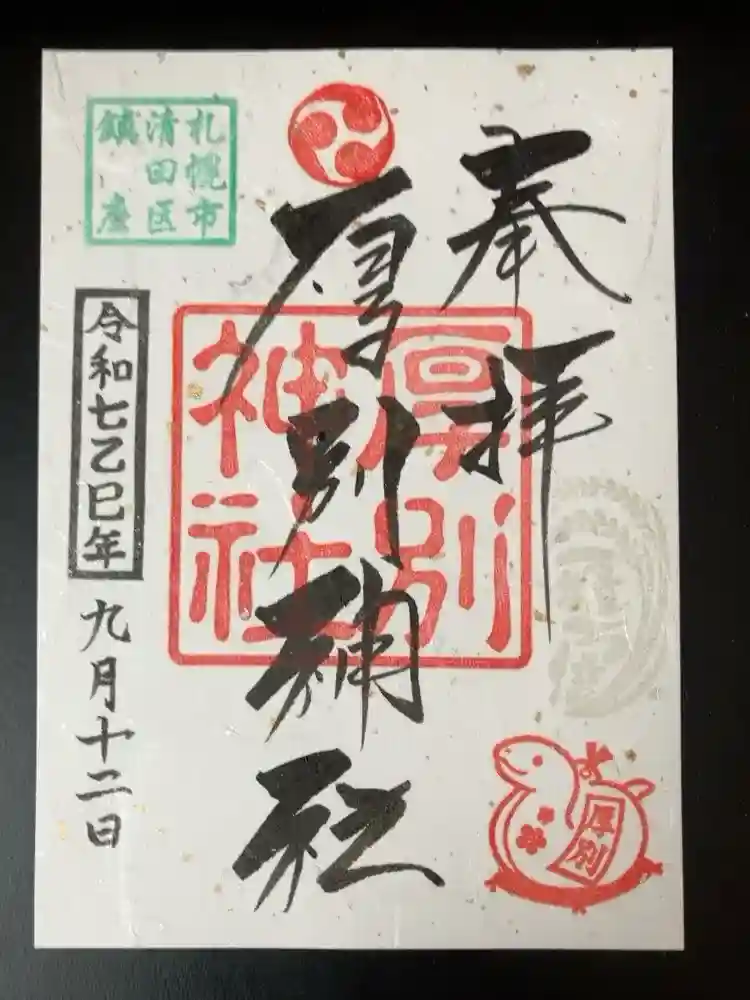 奉拝
厚別神社
厚別
神社
札幌市
清田区
鎮座
令和七乙巳年
九月十二日
厚別